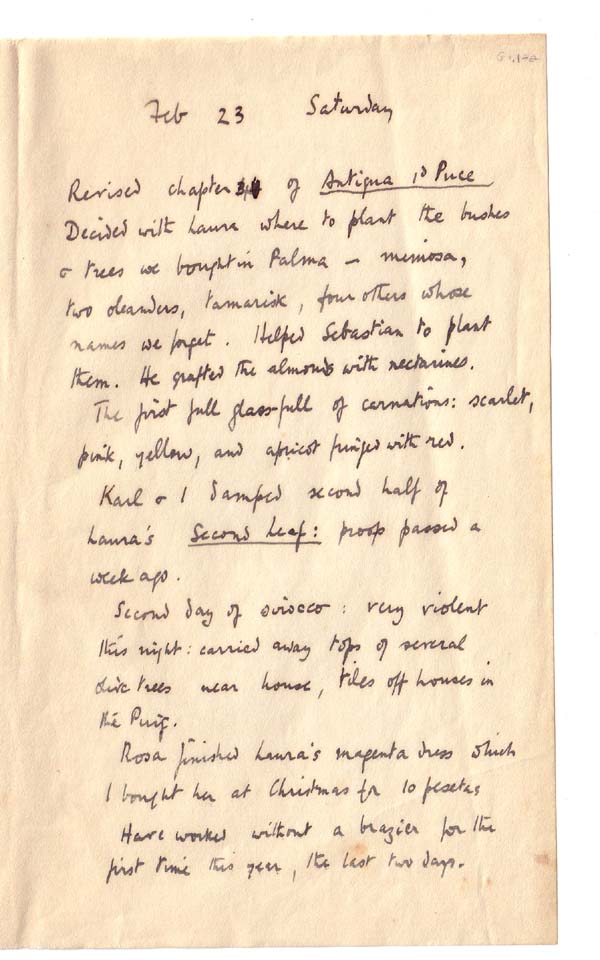 Feb 23 Saturday
Revised chapter of Antigua 1d Puce
Decided with Laura where to plant the bushes
& trees we bought in Palma — mimosa,
two oleanders, tamarisk, four others whose
names we forget. Helped Sebastian to plant
them. He grafted the almonds with nectarines.
The first full glass-full of carnations: scarlet,
pink, yellow, and apricot fringed with red.
Karl & I damped second half of
Laura's Second Leaf: proofs passed a
week ago.
Second day of sirocco: very violent
this night: carried away tops of several
olive trees near house, tiles off houses in
the Puig.
Rosa finished Laura's magenta dress which
I bought her at Christmas for 10 pesetas
Have worked without a brazier for the
first time this year, the last two days.